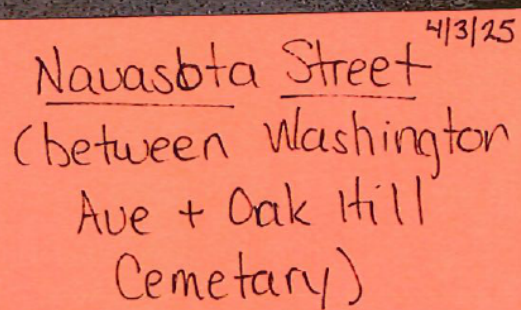 4/3/25
Navasota Street
(between Washington
Ave + Oak Hill
Cemetary)